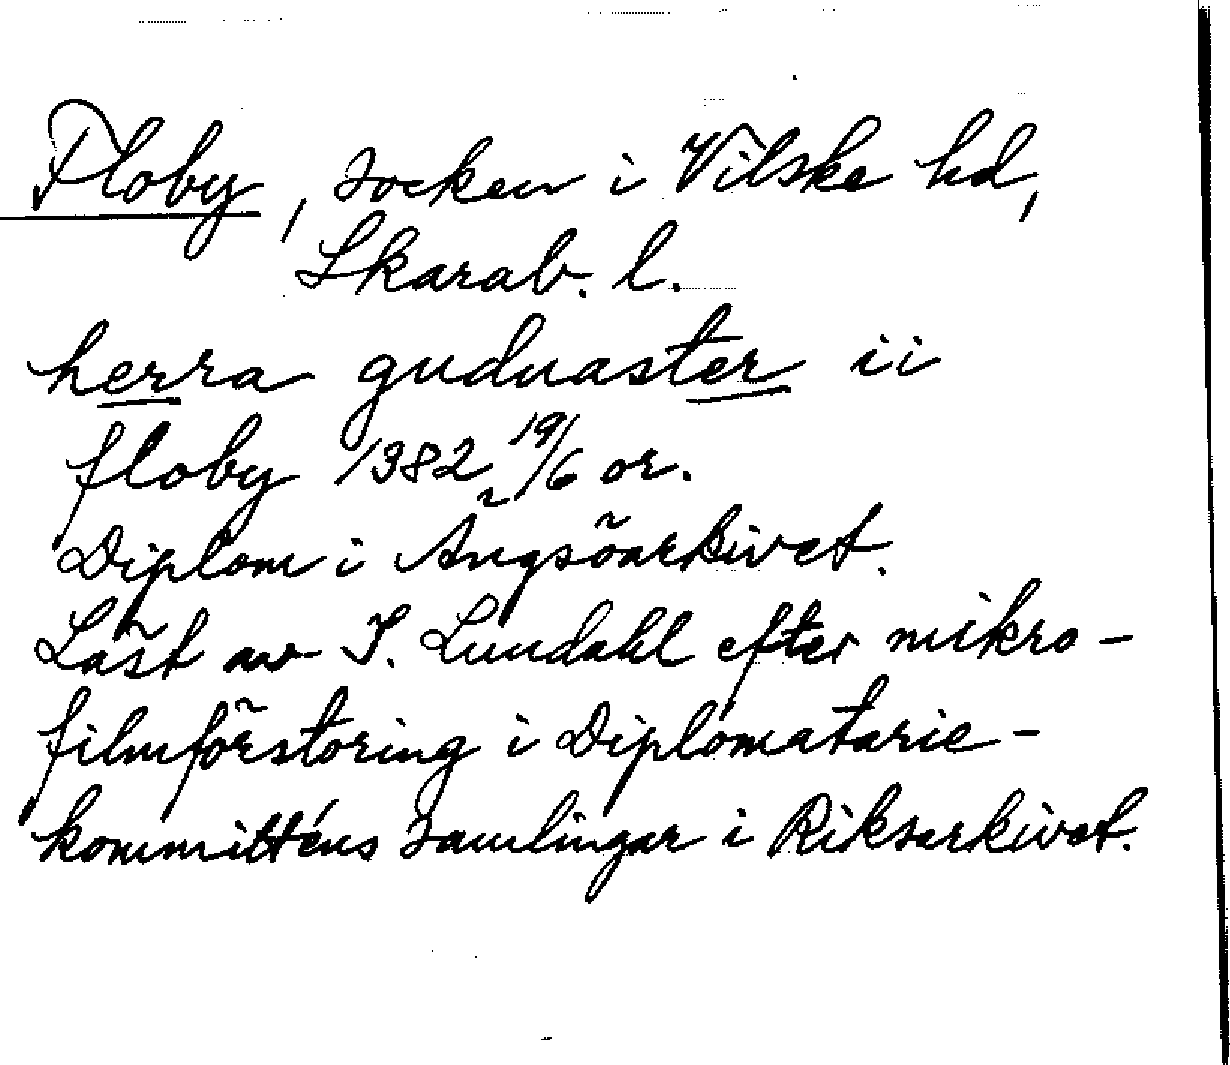 Floby, socken i Vilske hd,
Skarab. l.
herra guduaster ii
floby 1382 19/6 or.
Diplom i Ängsöarkivet.
Läst av I. Lundahl efter mikro-
filmförstoring i Diplomatarie-
kommitténs samlingar i Riksarkivet.